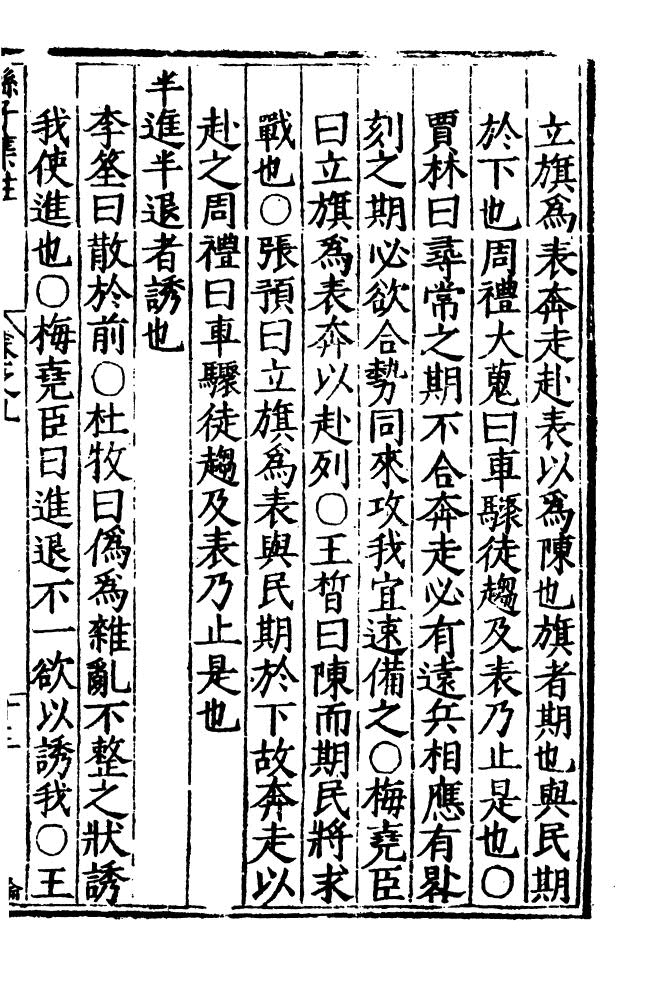 立旗為表奔走赴表以為陳也旗者期也與民期
於下也周禮大蒐曰車驟徒趨及表乃止是也○
賈林曰尋常之期不合奔走必有遠兵相應有晷
刻之期必欲合勢同來攻我宜速備之○梅堯臣
曰立旗為表奔以赴列○王晳曰陳而期民將求
戰也○張預曰立旗為表與民期於下故奔走以
赴之周禮曰車驟徒趨及表乃止是也
半進半退者誘也
李筌曰散於前○杜牧曰偽為雜亂不整之狀誘
我使進也○梅堯臣曰進退不一欲以誘我○王